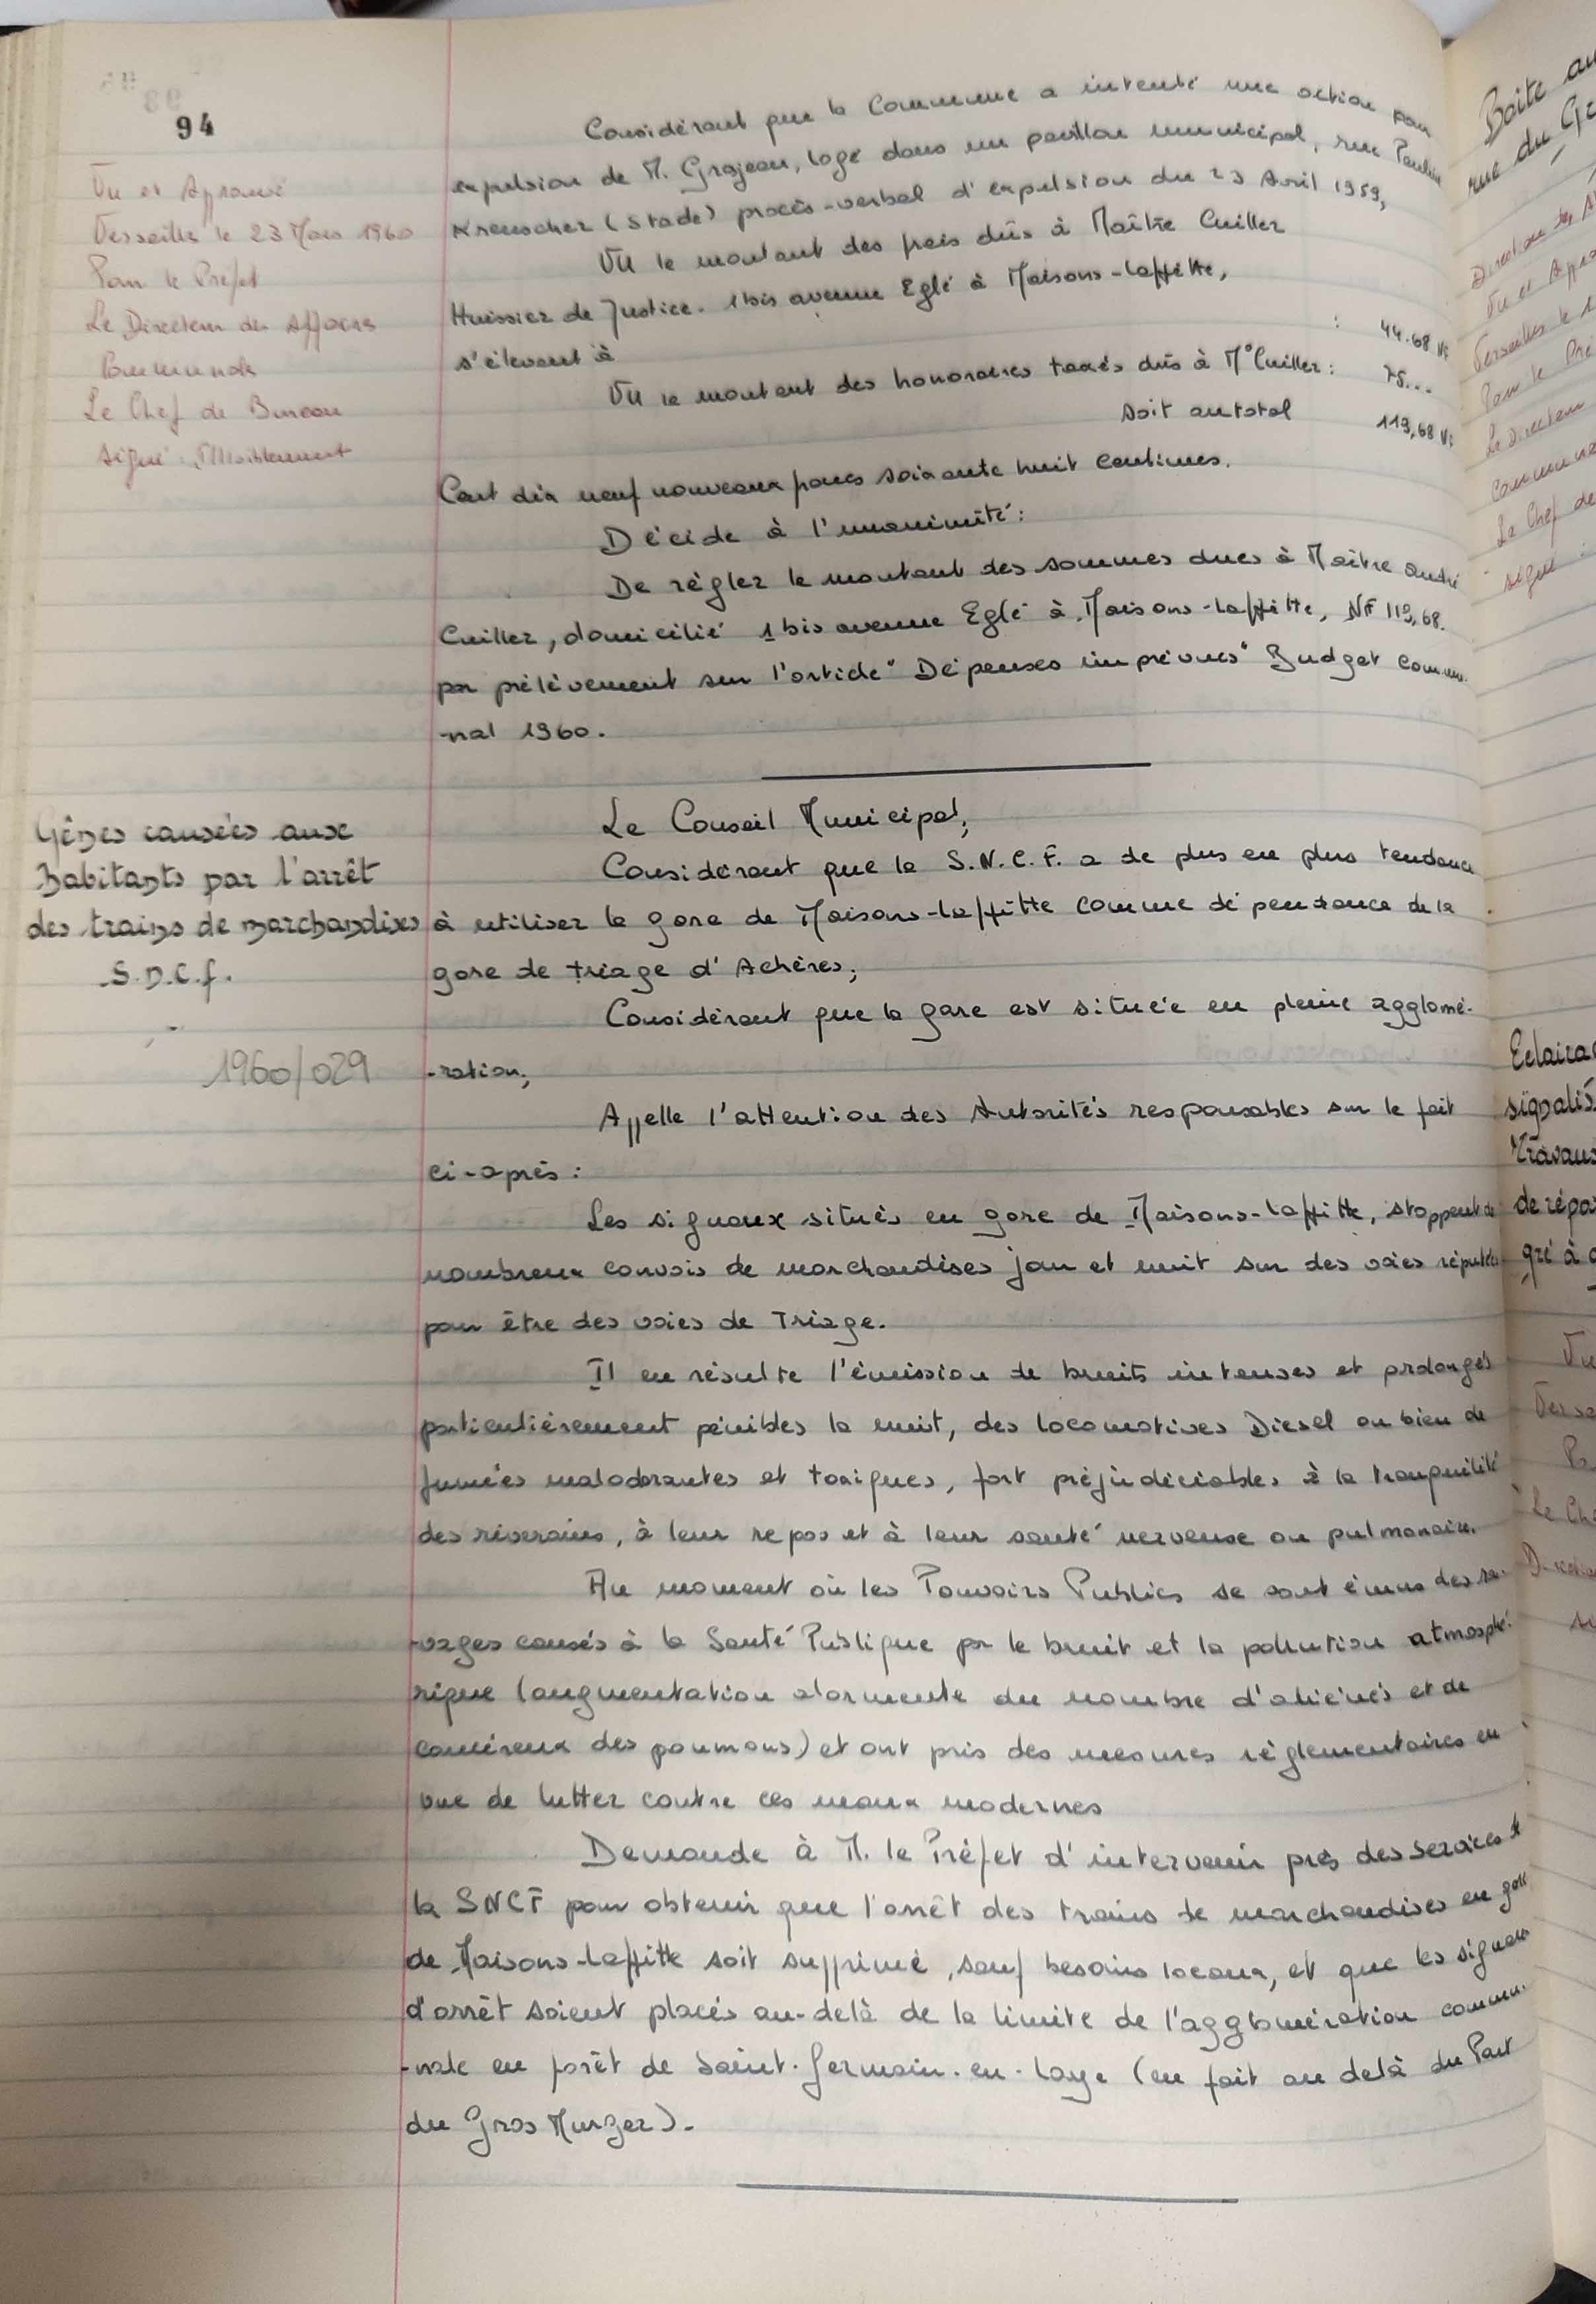 94
Vu et Approuvé
Versailles le 23 Mars 1960
Pour le Préfet
Le Directeur des Affaires
Communales
Le Chef de Bureau
signé :
Considérant que la Commune a intenté une action pour
expulsion de M. Grojean, logé dans un pavillon municipal, rue Pauline
Kreuscher (Stade) procès-verbal d'expulsion du 23 Avril 1959,
VU le montant des frais dûs à Maître Cuiller
Huissier de Justice. 1 bis avenue Eglé à Maisons-Laffitte,
s'élevant à : 44.68 NF
VU le montant des honoraires taxés dûs à M° Cuiller : 75...
soit au total 119,68 NF
Cent dix neuf nouveaux francs soixante huit centimes.
Décide à l'unanimité :
De régler le montant des sommes dues à Maître André
Cuiller, domicilié 1 bis avenue Eglé à Maisons-Laffitte, NF 119,68.
par prélèvement sur l'article "Dépenses imprévues" Budget commu-
-nal 1960.
Gênes causées aux
habitants par l'arrêt
des trains de marchandises
S.N.C.F.
1960/029
Le Conseil Municipal,
Considérant que la S.N.C.F. a de plus en plus tendance
à utiliser la gare de Maisons-Laffitte comme dépendance de la
gare de triage d'Achères,
Considérant que la gare est située en pleine agglomé-
-ration,
Appelle l'attention des Autorités responsables sur le fait
ci-après :
Les signaux situés en gare de Maisons-Laffitte, stoppent de
nombreux convois de marchandises jour et nuit sur des voies réputées
pour être des voies de Triage.
Il en résulte l'émission de bruits intenses et prolongés
particulièrement pénibles la nuit, des locomotives Diesel ou bien de
fumées malodorantes et toxiques, fort préjudiciables à la tranquilité
des riverains, à leur repos et à leur santé nerveuse ou pulmonaire.
Au moment où les Pouvoirs Publics se sont émus des ra-
-vages causés à la Santé Publique par le bruit et la pollution atmosphé-
rique (augmentation alarmente du nombre d'aliénés et de
cancéreux des poumons) et ont pris des mesures règlementaires en
vue de lutter contre ces maux modernes
Demande à M. le Préfet d'intervenir près des services de
la SNCF pour obtenir que l'arrêt des trains de marchandises en gare
de Maisons-Laffitte soit supprimé, sauf besoins locaux, et que les signaux
d'arrêt soient placés au-delà de la limite de l'agglomération commu-
-nale en forêt de Saint-Germain-en-Laye (en fait au delà du Pont
du Gros Murger).
Boîte au
rue du
Direction des
Vu et Appro
Versailles le
Pour le Pré
Le Directeur
Communa
Le Chef de
signé :
Eclaira
signalis
Travaux
de répa
gré à
Vu
Versa
Le Ch
Direction